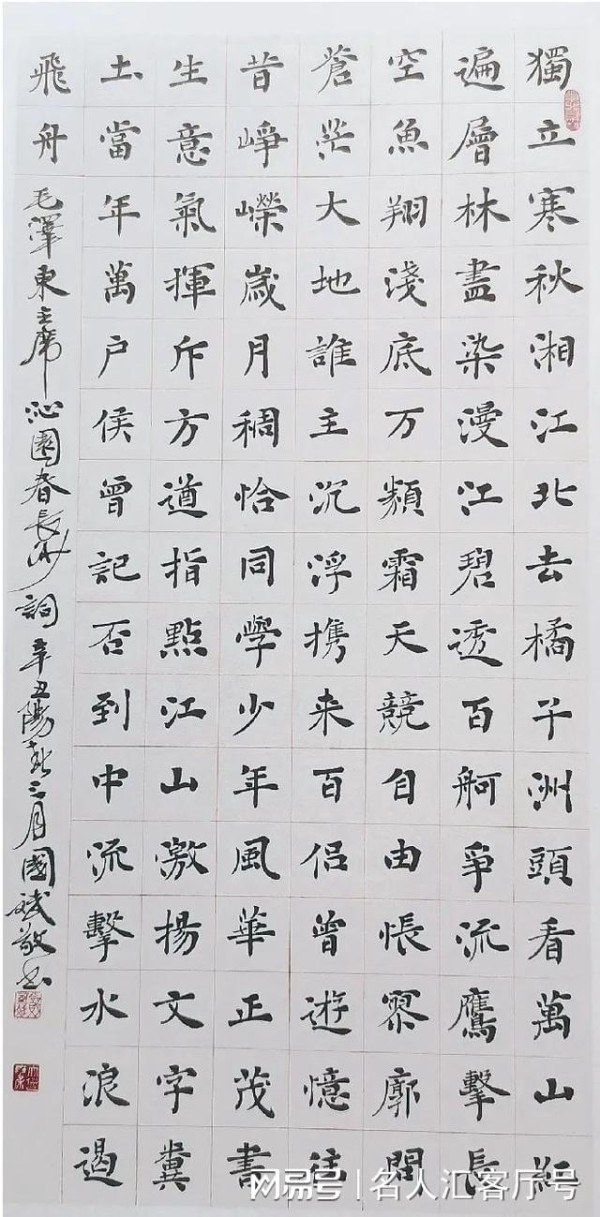 獨立寒秋湘江北去橘子洲頭看萬山紅
遍層林盡染漫江碧透百舸爭流鷹擊長
空魚翔淺底万類霜天競自由悵寥廓問
蒼茫大地誰主沉浮携来百侣曾遊憶往
昔崢嶸歲月稠恰同學少年風華正茂書
生意氣揮斥方遒指點江山激揚文字糞
土當年萬户侯曾記否到中流擊水浪遏
飛舟
毛澤東主席沁園春長沙詞辛丑陽春三月國斌敬书
网易号 | 名人汇客厅号